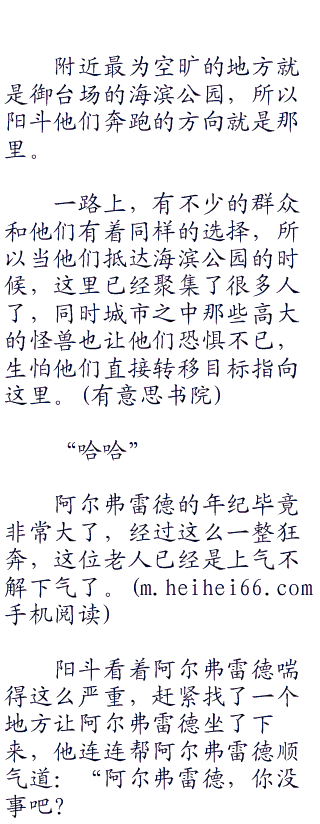 附近最为空旷的地方就
是御台场的海滨公园，所以
阳斗他们奔跑的方向就是那
里。
一路上，有不少的群众
和他们有着同样的选择，所
以当他们抵达海滨公园的时
候，这里已经聚集了很多人
了，同时城市之中那些高大
的怪兽也让他们恐惧不已，
生怕他们直接转移目标指向
这里。(有意思书院)
“哈哈”
阿尔弗雷德的年纪毕竟
非常大了，经过这么一整狂
奔，这位老人已经是上气不
解下气了。(m.heihei66.com
手机阅读)
阳斗看着阿尔弗雷德喘
得这么严重，赶紧找了一个
地方让阿尔弗雷德坐了下
来，他连连帮阿尔弗雷德顺
气道：“阿尔弗雷德，你没
事吧？